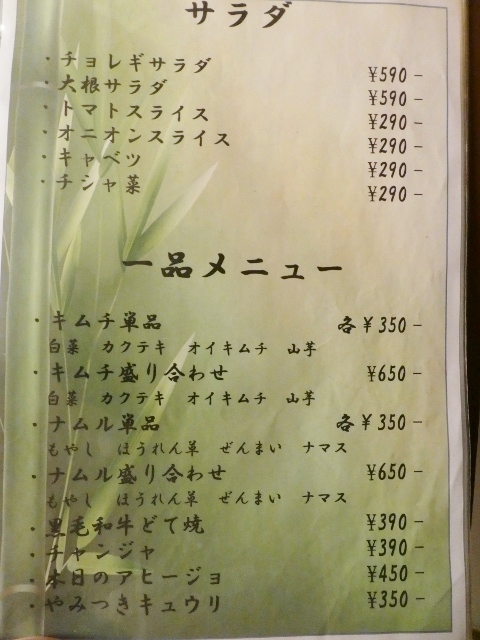 サラダ
・チョレギサラダ ¥590－
・大根サラダ ¥590－
・トマトスライス ¥290－
・オニオンスライス ¥290－
・キャベツ ¥290－
・チシャ菜 ¥290－
一品メニュー
・キムチ単品 各¥350－
白菜 カクテキ オイキムチ 山芋
・キムチ盛り合わせ ¥650－
白菜 カクテキ オイキムチ 山芋
・ナムル単品 各¥350－
もやし ほうれん草 ぜんまい ナマス
・ナムル盛り合わせ ¥650－
もやし ほうれん草 ぜんまい ナマス
・黒毛和牛どて焼 ¥390－
・チャンジャ ¥390－
・本日のアヒージョ ¥450－
・やみつきキュウリ ¥350－